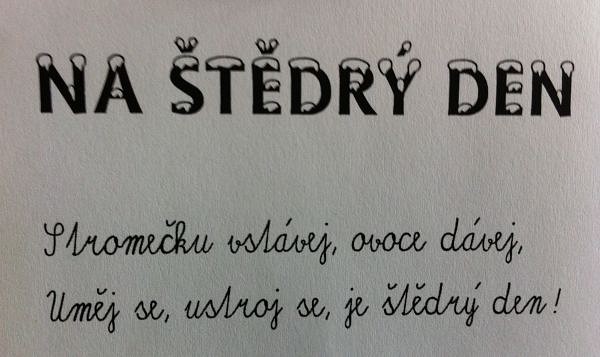 NA ŠTĚDRÝ DEN
Stromečku vstávej, ovoce dávej,
Uměj se, ustroj se, je štědrý den!